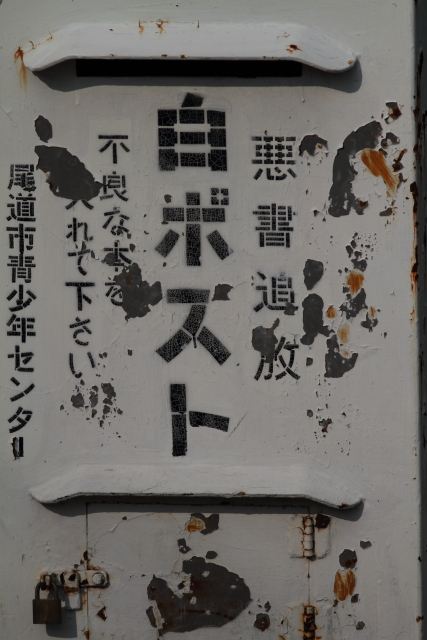 悪書追放
白ポスト
不良な本を
入れて下さい
尾道市青少年センター